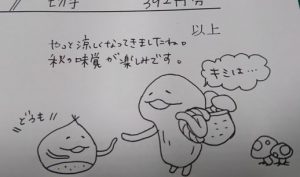 切手 392円分
以上
やっと涼しくなってきましたね。
秋の味覚が楽しみです。
キミは…
どうも